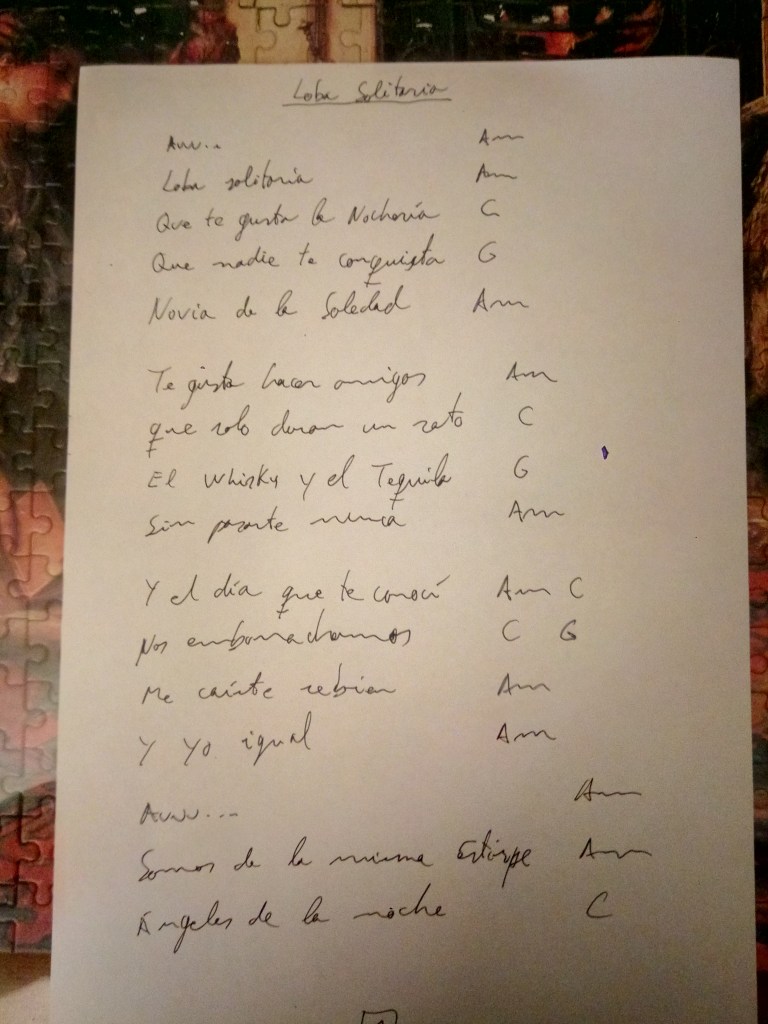 Loba Solitaria
Auu... Am
Loba solitaria Am
Que te gusta la Nochería C
Que nadie te conquista G
Novia de la Soledad Am
Te gusta hacer amigos Am
que solo duran un rato C
El Whisky y el Tequila G
Sin pasarte nunca Am
Y el día que te conocí Am C
Nos emborrachamos C G
Me caíste rebien Am
Y yo igual Am
Auuu... Am
Somos de la misma Estirpe Am
Ángeles de la noche C